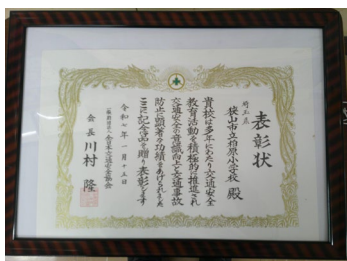 表彰状
埼玉県
狭山市立柏原小学校 殿
貴校は多年にわたり交通安全
教育活動を積極的に推進され
交通安全の意識向上と交通事故
防止に顕著な功績をあげられました
ここに記念品を贈り表彰します
令和七年一月十五日
一般財団法人 全日本交通安全協会
会長 川村 隆